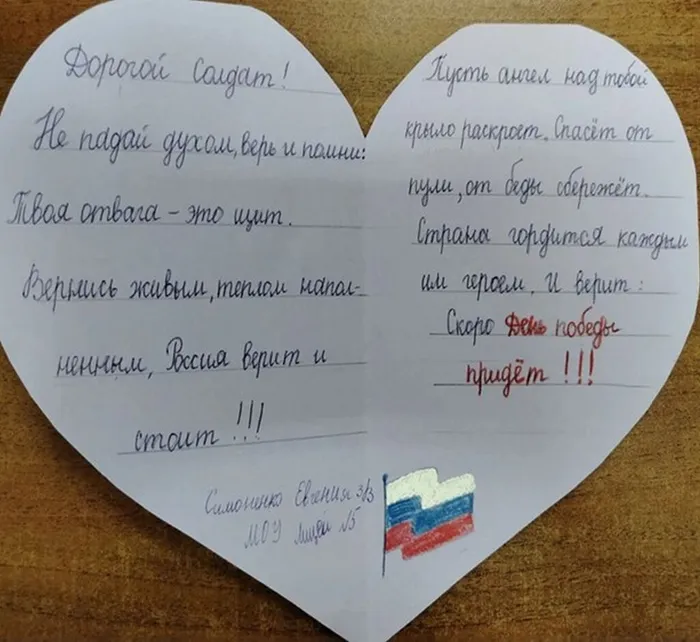 Дорогой Солдат!
Не падай духом, верь и помни:
Твоя отвага – это щит.
Вернись живым, теплом напол-
ненным, Россия верит и
стоит !!!
Симоненко Евгения 3/3
МОУ Лицей №5
Пусть ангел над тобой
крыло раскроет. Спасёт от
пули, от беды сбережёт.
Страна гордится каждым
им героем. И верит:
Скоро День победы
придёт !!!